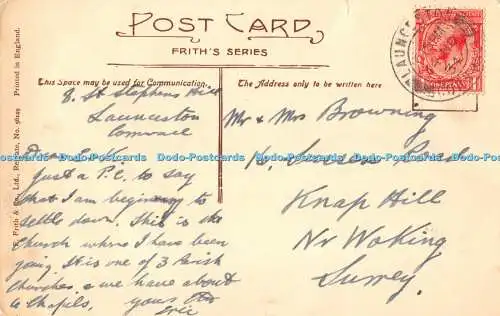 POST CARD
FRITH'S SERIES
This Space may be used for Communication.
The Address only to be written here
8, St Stephens Hill
Launceston
Cornwall
Just a P.C. to say
that I am beginning to
settle down. This is the
Church where I have been
going. It is one of 3 Parish
Churches, & we have about
6 Chapels. yours
Eric
Mr & Mrs Browning
Road
Knap Hill
Nr Woking
Surrey.
LAUNCESTON
F. Frith & Co., Ltd., Reigate, No.
Printed in England.
Dodo-Postcards Dodo-Postcards Dodo-Postcards Dodo-Postcards